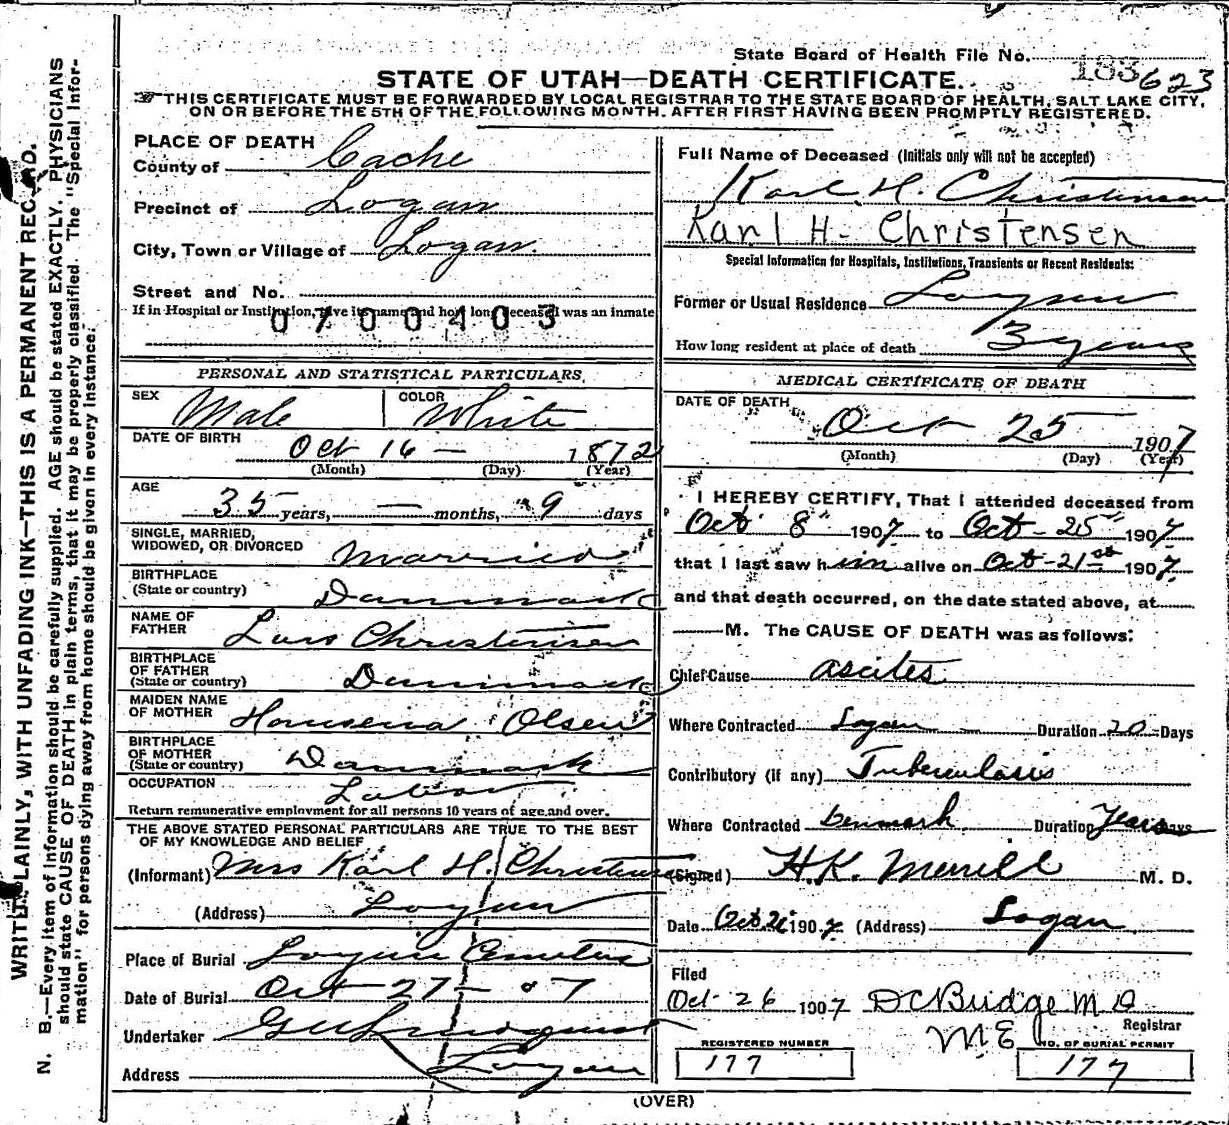 State Board of Health File No. 183 623
STATE OF UTAH—DEATH CERTIFICATE.
THIS CERTIFICATE MUST BE FORWARDED BY LOCAL REGISTRAR TO THE STATE BOARD OF HEALTH, SALT LAKE CITY,
ON OR BEFORE THE 5TH OF THE FOLLOWING MONTH. AFTER FIRST HAVING BEEN PROMPTLY REGISTERED.
WRITE PLAINLY, WITH UNFADING INK—THIS IS A PERMANENT RECORD.
N. B.—Every item of information should be carefully supplied. AGE should be stated EXACTLY. PHYSICIANS
should state CAUSE OF DEATH in plain terms, that it may be properly classified. The "Special Infor-
mation" for persons dying away from home should be given in every instance.
PLACE OF DEATH
County of Cache
Precinct of Logan
City, Town or Village of Logan.
Street and No.
If in Hospital or Institution, give its name and how long deceased was an inmate
0700403
PERSONAL AND STATISTICAL PARTICULARS
SEX Male COLOR White
DATE OF BIRTH Oct 16 — 1872
(Month) (Day) (Year)
AGE 35 years, — months, 9 days
SINGLE, MARRIED,
WIDOWED, OR DIVORCED Married
BIRTHPLACE
(State or country) Danmark
NAME OF
FATHER Lars Christensen
BIRTHPLACE
OF FATHER
(State or country) Danmark
MAIDEN NAME
OF MOTHER Olsen
BIRTHPLACE
OF MOTHER
(State or country) Danmark
OCCUPATION Labor
Return remunerative employment for all persons 10 years of age and over.
THE ABOVE STATED PERSONAL PARTICULARS ARE TRUE TO THE BEST
OF MY KNOWLEDGE AND BELIEF
(Informant) Mrs Karl H. Christensen
(Address) Logan
Place of Burial Logan Cemetery
Date of Burial Oct 27 — 07
Undertaker
Address Logan
Full Name of Deceased (Initials only will not be accepted)
Karl H. Christensen
Karl H. Christensen
Special Information for Hospitals, Institutions, Transients or Recent Residents:
Former or Usual Residence Logan
How long resident at place of death 3 years
MEDICAL CERTIFICATE OF DEATH
DATE OF DEATH
Oct 25 1907
(Month) (Day) (Year)
I HEREBY CERTIFY, That I attended deceased from
Oct 8" 1907 to Oct - 25" 1907
that I last saw him alive on Oct - 21st 1907
and that death occurred, on the date stated above, at
M. The CAUSE OF DEATH was as follows:
Chief Cause ascites
Where Contracted Logan — Duration 20 Days
Contributory (if any) Tuberculosis
Where Contracted Denmark Duration Years Days
(Signed) H.K. Merrill M. D.
Date Oct. 26 1907. (Address) Logan
Filed
Oct- 26 1907 DC Budge M D
Registrar
REGISTERED NUMBER NO. OF BURIAL PERMIT
177 177
(OVER)